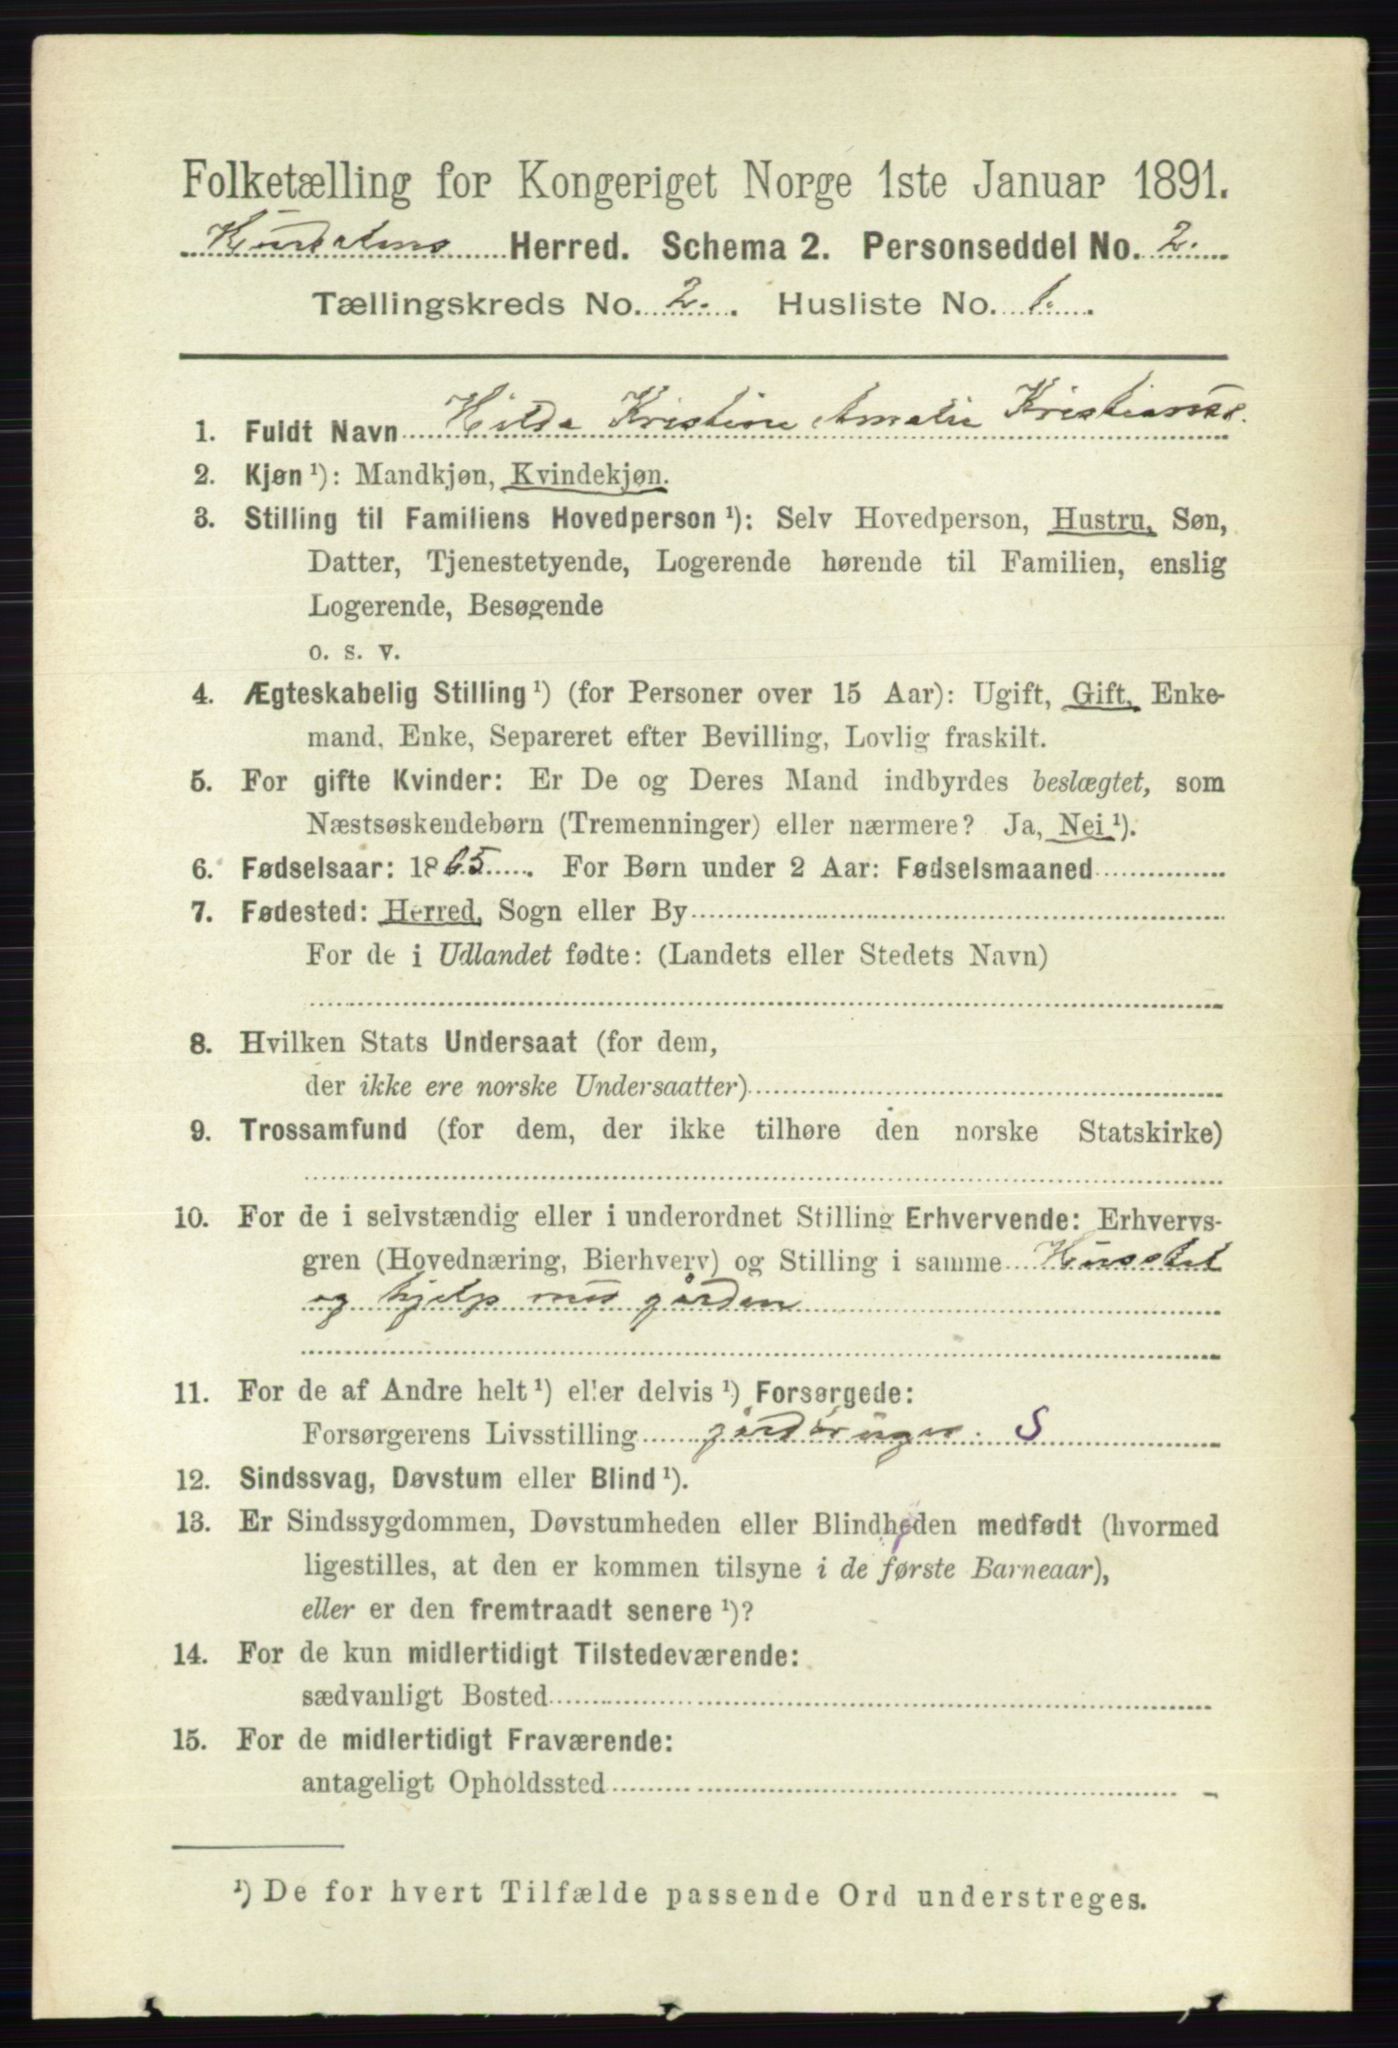 Folketælling for Kongeriget Norge 1ste Januar 1891.
Hurdalens Herred. Schema 2. Personseddel No. 2.
Tællingskreds No. 2. Husliste No. 1.
1. Fuldt Navn Hilda Kristine Amalie
2. Kjøn ¹): Mandkjøn, Kvindekjøn.
3. Stilling til Familiens Hovedperson ¹): Selv Hovedperson, Hustru, Søn,
Datter, Tjenestetyende, Logerende hørende til Familien, enslig
Logerende, Besøgende
o. s. v.
4. Ægteskabelig Stilling ¹) (for Personer over 15 Aar): Ugift, Gift, Enke-
mand, Enke, Separeret efter Bevilling, Lovlig fraskilt.
5. For gifte Kvinder: Er De og Deres Mand indbyrdes beslægtet, som
Næstsøskendebørn (Tremenninger) eller nærmere? Ja, Nei ¹).
6. Fødselsaar: 1865. For Børn under 2 Aar: Fødselsmaaned
7. Fødested: Herred, Sogn eller By
For de i Udlandet fødte: (Landets eller Stedets Navn)
8. Hvilken Stats Undersaat (for dem,
der ikke ere norske Undersaatter)
9. Trossamfund (for dem, der ikke tilhøre den norske Statskirke)
10. For de i selvstændig eller i underordnet Stilling Erhvervende: Erhvervs-
gren (Hovednæring, Bierhverv) og Stilling i samme Husstel
og hjelp med gården
11. For de af Andre helt ¹) eller delvis ¹) Forsørgede:
Forsørgerens Livsstilling gårdbruger. S
12. Sindssvag, Døvstum eller Blind ¹).
13. Er Sindssygdommen, Døvstumheden eller Blindheden medfødt (hvormed
ligestilles, at den er kommen tilsyne i de første Barneaar),
eller er den fremtraadt senere ¹)?
14. For de kun midlertidigt Tilstedeværende:
sædvanligt Bosted
15. For de midlertidigt Fraværende:
antageligt Opholdssted
¹) De for hvert Tilfælde passende Ord understreges.